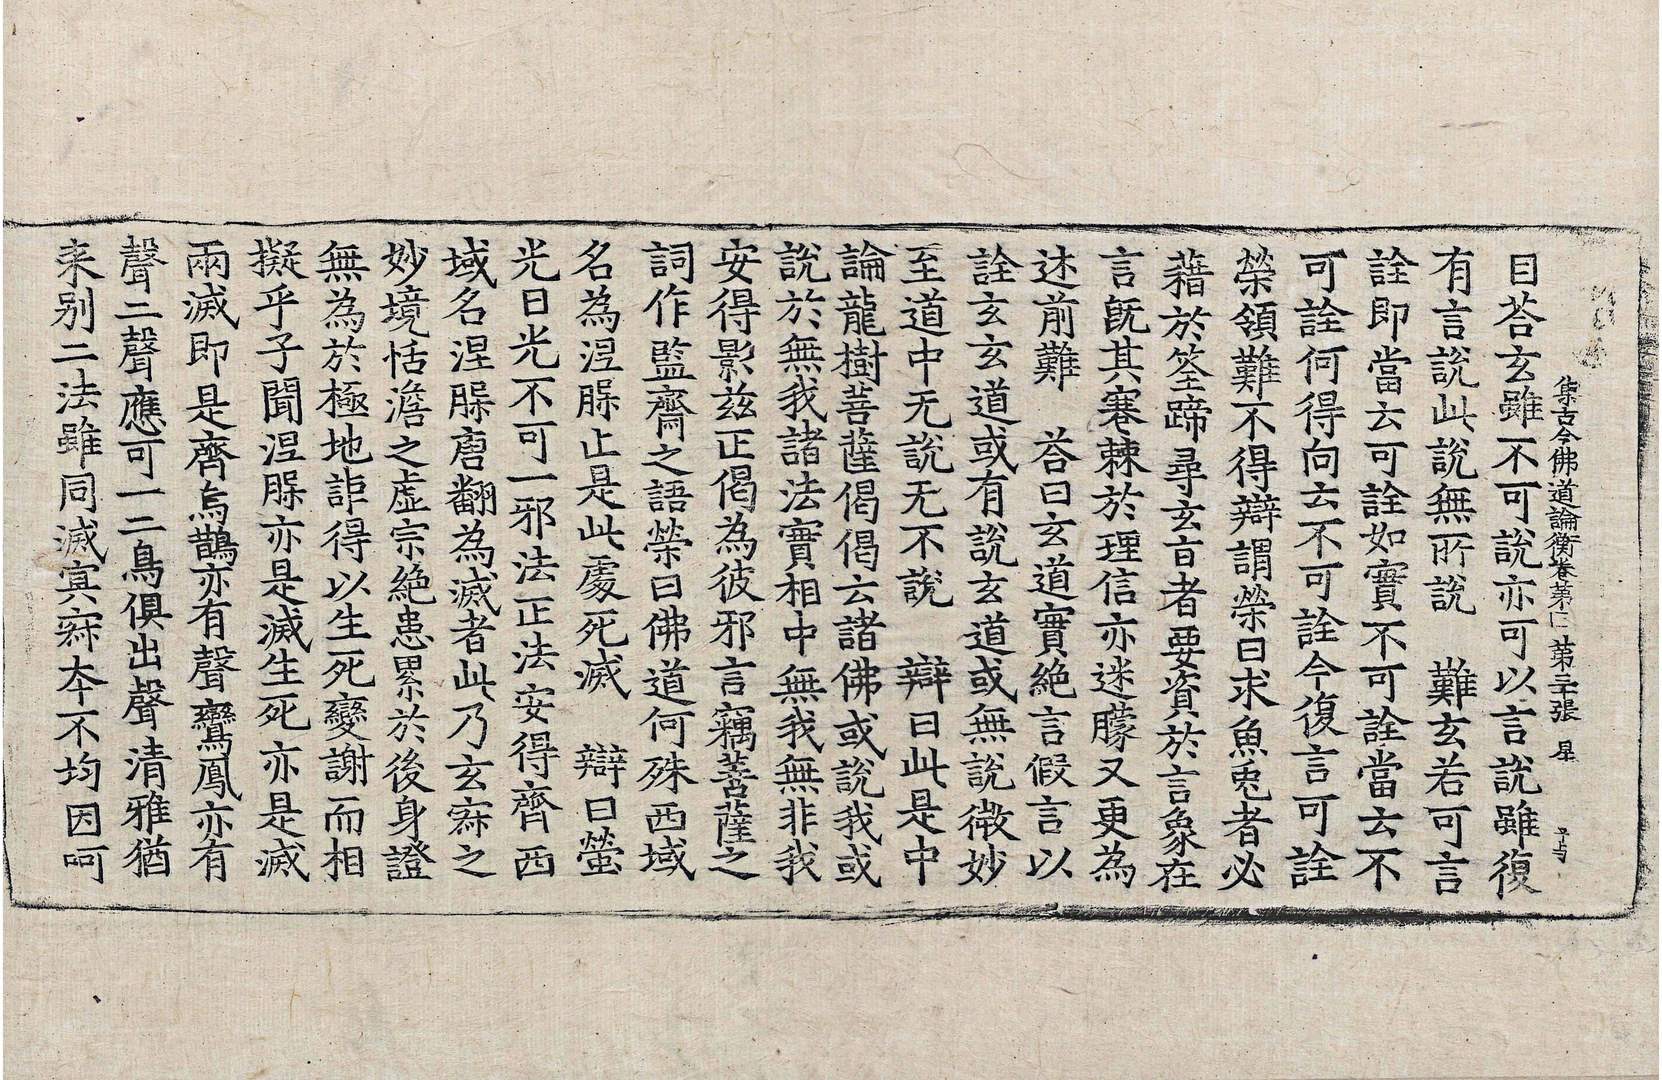 集古今佛道論衡卷第 第三張 星
目荅玄雖不可說亦可以言說雖復
有言說此說無所說 難玄若可言
詮即當云可詮如實不可詮當云不
可詮何得向云不可詮今復言可詮
榮領難不得辯謂榮曰求魚兎者必
藉於筌蹄尋玄旨者要資於言象在
言既其蹇棘於理信亦迷朦又更為
述前難 荅曰玄道實絶言假言以
詮玄玄道或有說玄道或無說微妙
至道中无說无不說 辯曰此是中
論龍樹菩薩偈偈云諸佛或說我或
說於無我諸法實相中無我無非我
安得影玆正偈為彼邪言竊菩薩之
詞作監齋之語榮曰佛道何殊西域
名為涅槃止是此處死滅 辯曰螢
光日光不可一邪法正法安得齊西
域名涅槃唐翻為滅者此乃玄寂之
妙境恬澹之虛宗絶患累於後身證
無為於極地詎得以生死變謝而相
擬乎子聞涅槃亦是滅生死亦是滅
兩滅即是齊烏鵲亦有聲鸞鳳亦有
聲二聲應可一二鳥俱出聲清雅猶
来別二法雖同滅寘寂本不均因呵